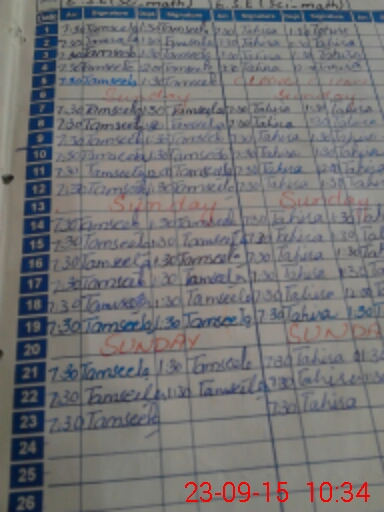 S.S.E (Sci-math) S.S.E (Sci-math)
Date Arr. Signature Dept. Signature Arr. Signature Dept. Signature
1 7:30 Tamseela 1:30 Tamseela 7:30 Tahisa 1:30 Tahisa
2 7:30 Tamseela 1:30 Tamseela 7:30 Tahisa 1:30 Tahisa
3 7:30 Tamseela 1:30 Tamseela 7:30 Tahisa 1:30 Tahisa
4 7:30 Tamseela 12:00 Tamseela 7:30 Tahisa
5 7:30 Tamseela 1:30 Tamseela
6 Sunday Sunday
7 7:30 Tamseela 1:30 Tamseela 7:30 Tahisa 1:30 Tahisa
8 7:30 Tamseela 1:30 Tamseela 7:30 Tahisa 1:30 Tahisa
9 7:30 Tamseela 1:30 Tamseela 7:30 Tahisa 1:30 Tahisa
10 7:30 Tamseela 1:30 Tamseela 7:30 Tahisa 1:30 Tahisa
11 7:30 Tamseela Tamseela 7:30 Tahisa Tahisa
12 7:30 Tamseela 1:30 Tamseela 7:30 Tahisa 1:30 Tahisa
13 Sunday Sunday
14 7:30 Tamseela 1:30 Tamseela 7:30 Tahisa 1:30 Tah
15 7:30 Tamseela 1:30 Tamseela 7:30 Tahisa 1:30 Tah
16 7:30 Tamseela 1:30 Tamseela 7:30 Tahisa 1:30 Tah
17 7:30 Tamseela 1:30 Tamseela 7:30 Tahisa 1:30 Ta
18 7:30 Tamseela 1:30 Tamseela 7:30 Tahisa 12:00 Ta
19 7:30 Tamseela 1:30 Tamseela 7:30 Tahisa 1:30 T
20 SUNDAY SUNDA
21 7:30 Tamseela 1:30 Tamseela 7:30 Tahisa 1:30
22 7:30 Tamseela 1:30 Tamseela 7:30 Tahisa 1:30
23 7:30 Tamseela 7:30 Tahisa
24
25
26
23-09-15 10:34